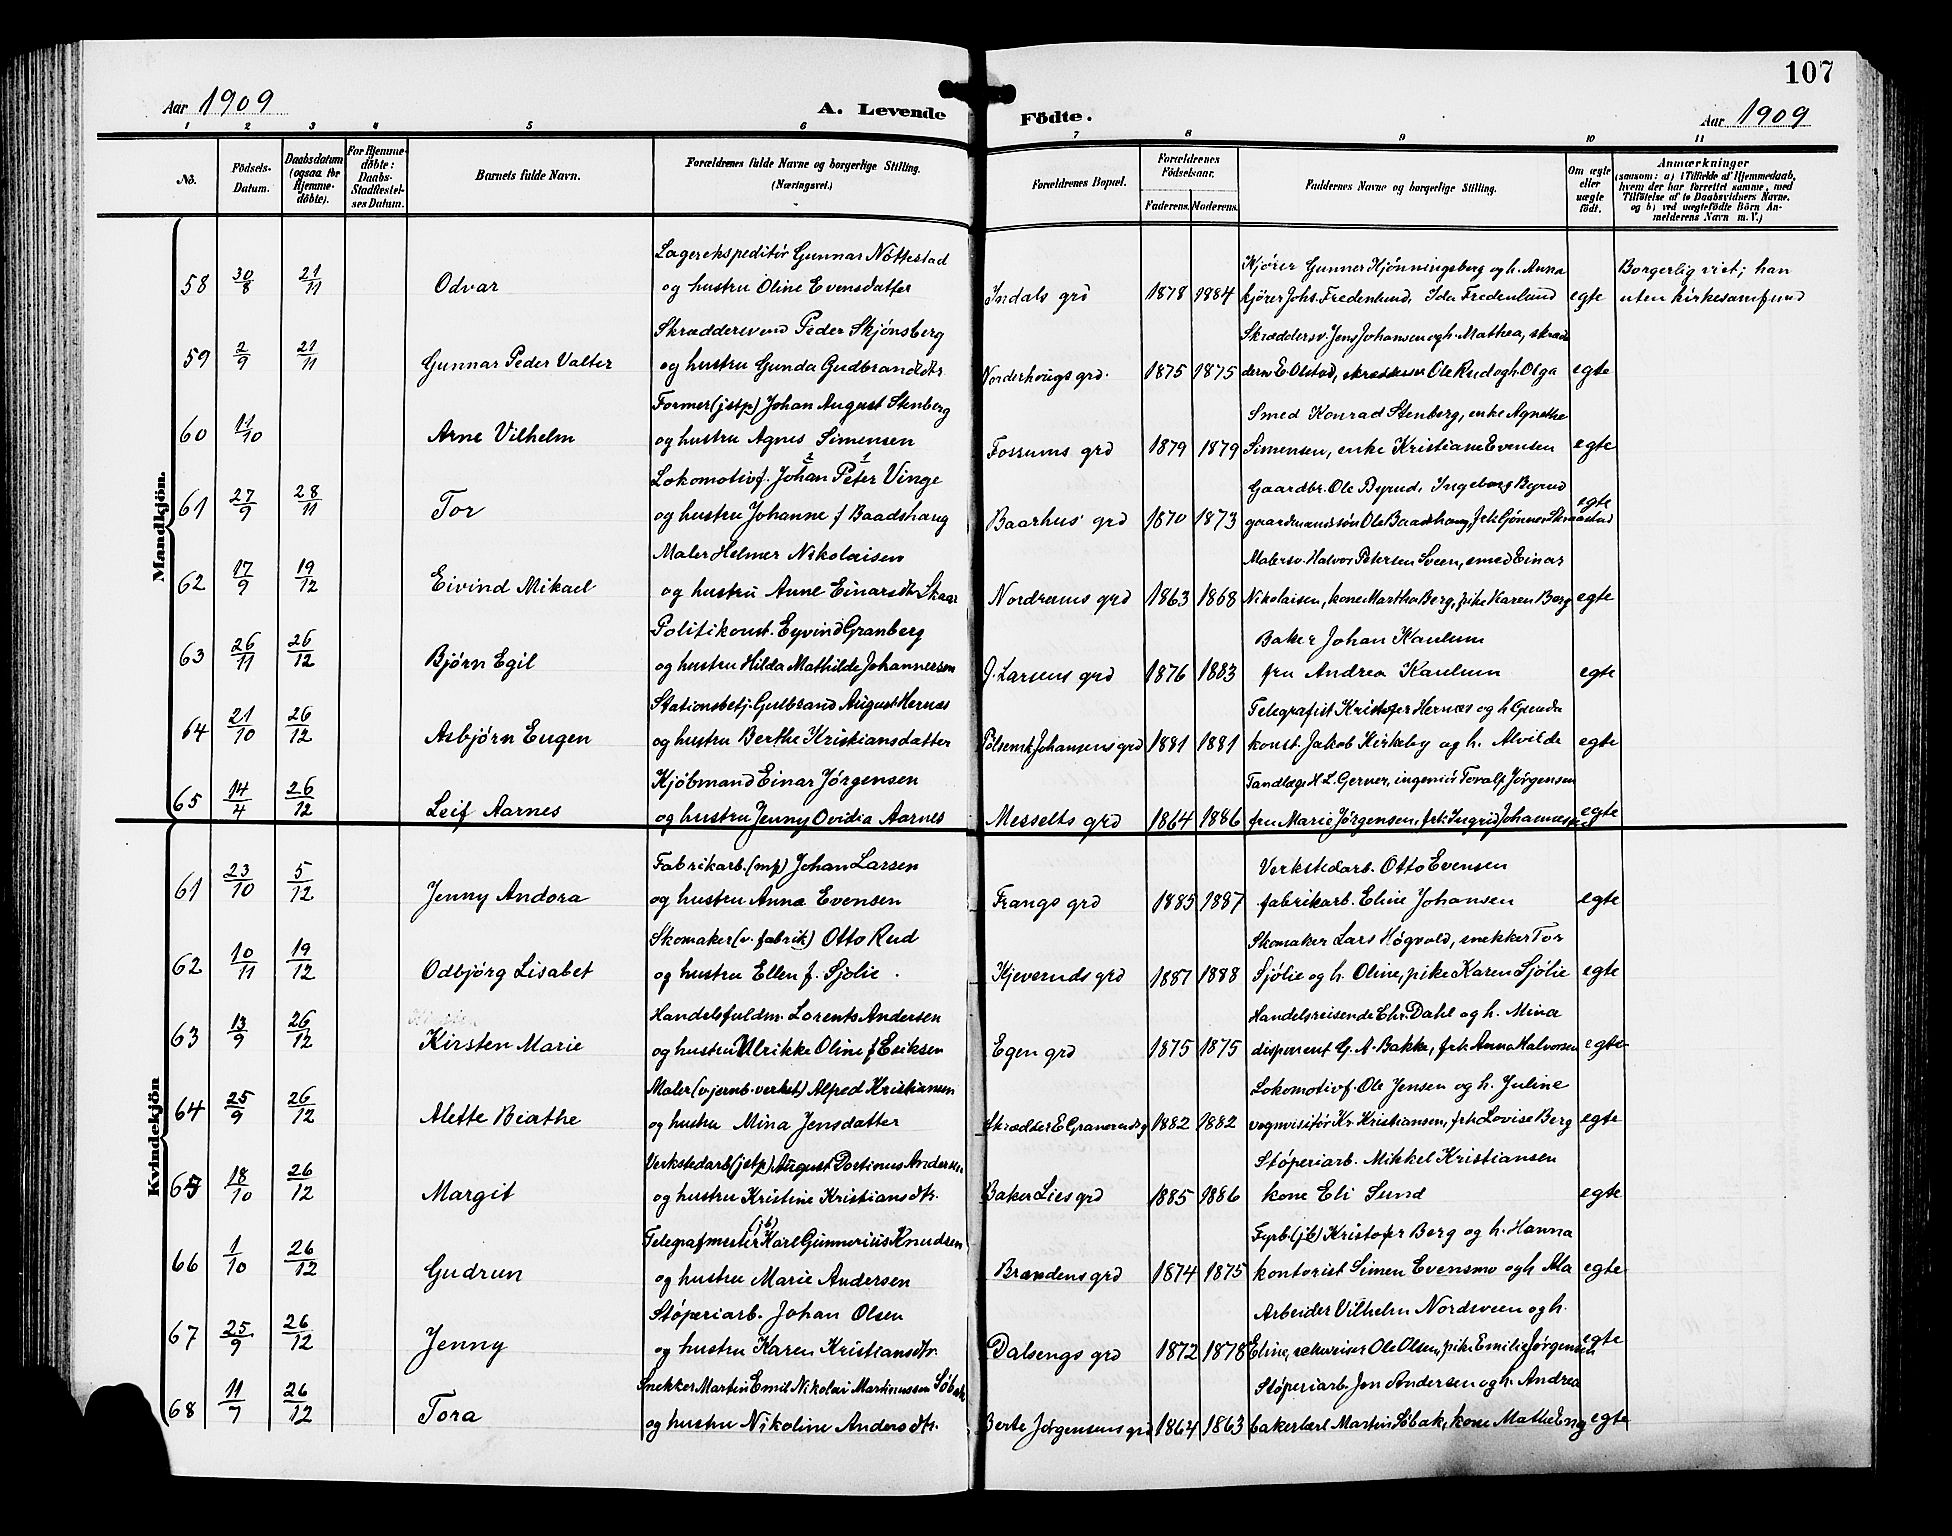 107
Aar 1909 A. Levende Fødte. Aar 1909
1 2 3 4 5 6 7 8 9 10 11
No. Fødsels-Datum. Daabsdatum (ogsaa for Hjemmedøbte). For Hjemmedøbte: Daabs-Stadfestelses Datum. Barnets fulde Navn. Forældrenes fulde Navne og borgerlige Stilling. (Næringsvei.) Forældrenes Bopæl. Forældrenes Fødselsaar. Faderens. Moderens. Faddernes Navne og borgerlige Stilling. Om ægte eller uægte født. Anmærkninger (saasom: a) i Tilfælde af Hjemmedaab, hvem der har forrettet samme, med Tilføielse af to Daabsvidners Navne, og b) ved uægtefødte Børn Anmelderens Navn m. V.)
Mandkjøn.
Lagerekspeditør Gunnar Nøttestad Kjører Gunner Hjønningsberg og h. Anna Borgerlig viet; han
58 30/8 21/11 Odvar og hustru Oline Evensdatter Indals grd 1878 1884 kjører Johs. Fredenlund, Ida Fredenlund egte uten kirkesamfund
Skræddersvend Peder Skjønsberg Skræddersv. Jens Johansen og h. Mathea, skræd
59 2/9 21/11 Gunnar Peder Valter og hustru Gunda Gudbrandsdtr Norderhougs grd. 1875 1875 dersv E. Olstad, skrædersv Ole Rud og h. Olga egte
Former (jstp) Johan August Stenberg Smed Konrad Stenberg, enke Agnethe
60 11/10 Arne Vilhelm og hustru Agnes Simensen Fossums grd 1879 1879 Simensen, enke Kristiane Evensen egte
Lokomotivf. Johan Peter Vinge Gaardbr. Ole Byrud, Ingeborg Byrud
61 27/9 28/11 Tor og hustru Johanne f Baadshaug Baarhus grd 1870 1873 gaardmandssøn Ole Baadshaug, frk. Gønner Skraastad egte
Maler Helmer Nikolaisen Malersv. Halvor Petersen Sveen, smed Einar
62 17/9 19/12 Eivind Mikael og hustru Anne Einarsdtr Skaar Nordrums grd 1863 1868 Nikolaisen, kone Martha Berg, pike Karen Berg egte
Politikonst. Eyvind Granberg Baker Johan Kaulum
63 26/11 26/12 Bjørn Egil og hustru Hilda Mathilde Johannersen J. Larsens grd 1876 1883 fru Andrea Kaulum egte
Stationsbetj. Gulbrand August Hernæs Telegrafist Kristofer Hernæs og h Gunda
64 21/10 26/12 Asbjørn Eugen og hustru Berthe Kristiansdatter Pølsemk Johansens grd 1881 1881 konst. Jakob Kirkeby og h. Alvilde egte
Kjøbmand Einar Jørgensen Tandlæge H. L. Gerner, ingeniør Toralf Jørgensen
65 14/4 26/12 Leif Aarnes og hustru Jenny Ovidia Aarnes Messelts grd 1864 1886 fru Marie Jørgensen, frk. Ingrid Johannessen egte
Kvindekjøn
Fabrikarb. (mp) Johan Larsen Verkstedarb. Otto Evensen
61 23/10 5/12 Jenny Andora og hustru Anna Evensen Frangs grd 1885 1887 fabrikarb. Eline Johansen egte
Skomaker (v. fabrik) Otto Rud Skomaker Lars Høgvold, snekker Tor
62 10/11 19/12 Odbjørg Lisabet og hustru Ellen f. Sjølie. Kjeveruds grd 1887 1888 Sjølie og h. Oline, pike Karen Sjølie egte
Handelsfuldm. Lorents Andersen Handelsreisende Chr. Dahl og h. Mina
63 13/9 26/12 Kirsten Marie og hustru Ulrikke Oline f Eriksen Egen grd 1875 1875 disponent G. A. Bakke, frk. Anna Halvorsen egte
Maler (v. jernb. verket) Alfred Kristiansen Lokomotivf. Ole Jensen og h. Juline
64 25/9 26/12 Alette Beathe og hustru Mina Jensdatter Skrædder E Graneruds g 1882 1882 vognvisitør Kr. Kristiansen, frk. Lovise Berg egte
Verkstedarb (jstp) August Dortinus Andersen Støperiarb. Mikkel Kristiansen
65 18/10 26/12 Margit og hustru Kristine Kristiansdtr. Baker Lies grd 1885 1886 kone Eli Sund egte
Telegrafmester (jb) Karl Gunnerius Knudsen Fyrb. (jb) Kristofer Berg og h. Hanna
66 1/10 26/12 Gudrun og hustru Marie Andersen Brændens grd 1874 1875 kontorist Simen Evensmo og h Ala egte
Støperiarb. Johan Olsen Arbeider Vilhelm Nordsveen og h.
67 25/9 26/12 Jenny og hustru Karen Kristiansdtr. Dalsengs grd 1872 1878 Eline, Ole Olsen, pike Emilie Jørgensen egte
Snekker Martin Emil Nikolai Martinussen Søbak Støperiarb. Jon Andersen og h. Andrea
68 11/7 26/12 Tora og hustru Nikoline Andersdtr. Berte Jørgensens grd 1864 1863 bakerlærl Martin Søbak, kone Mathe Eng egte